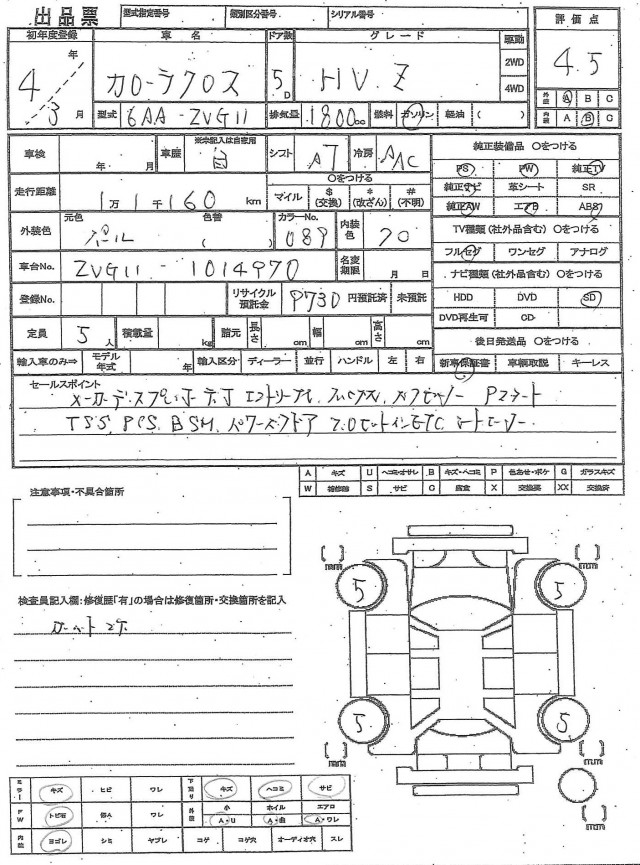 出品票 型式指定番号 類別区分番号 シリアル番号
初年度登録 車名 ドア数 グレード 駆動 評価点
4 年 3 月 カローラクロス 5 D HV Z 2WD 4WD 4.5
型式 6AA-ZVG11 排気量 1800 cc 燃料 ガソリン・軽油( )
外装 A B C
内装 A B C
車検 年 月 車歴 ※未記入は自家用 自 シフト AT 冷房 AAC
純正装備品 ○をつける
PS PW 純正TV
走行距離 1万1千160 km ○をつける マイル $(交換) *(改ざん) #(不明)
純正ナビ 革シート SR
純正AW エアB ABS
外装色 元色 パール 色替 ( ) カラーNo. 089 内装色 20
TV種類(社外品含む) ○をつける
フルセグ ワンセグ アナログ
車台No. ZVG11-1014970 名変期限 月 日
ナビ種類(社外品含む) ○をつける
登録No. リサイクル預託金 9730 円預託済 未預託
HDD DVD SD
DVD再生可 CD
定員 5 人 積載量 kg 諸元 長さ cm 幅 cm 高さ cm
後日発送品 ○をつける
輸入車のみ⇒ モデル年式 年 輸入区分 ディーラー・並行 ハンドル 左・右
新車保証書 車輌取説 キーレス
セールスポイント
メーカーディスプレイオーディオ
TSS, PCS, BSM, パワーバックドア ETC シートヒーター
A キズ U ヘコミ・オサレ B キズ・ヘコミ P 色あせ・ボケ G ガラスキズ
W 補修跡 S サビ C 腐食 X 交換要 XX 交換済
注意事項・不具合箇所
検査員記入欄:修復歴「有」の場合は修復箇所・交換箇所を記入
( ) mm ( ) mm
5 5
5 5
( ) mm ( ) mm
( ) mm
ミラー キズ ヒビ ワレ 下廻り キズ ヘコミ サビ
FW トビ石 傷A ワレ 外装 小 A・U ホイル A・曲 エアロ A・ワレ
内装 ヨゴレ シミ ヤブレ コゲ コゲ穴 オーディオ穴 スレ